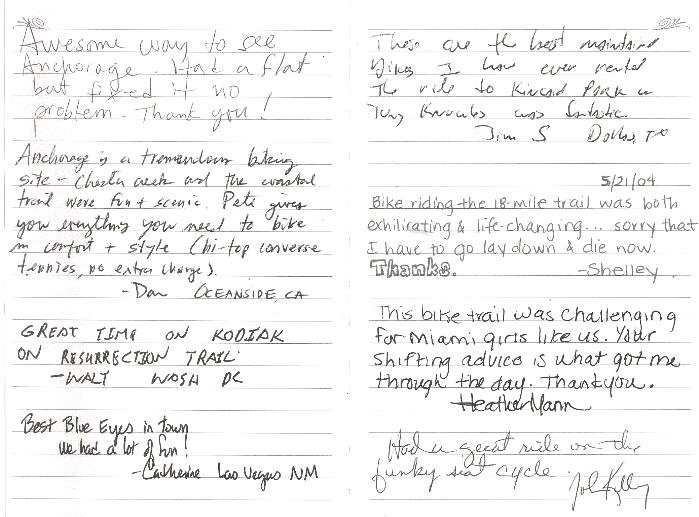 Awesome way to see
Anchorage. Had a flat
but fixed it no
problem. Thank you!
Anchorage is a tremendous biking
site - Chester creek and the coastal
trail were fun + scenic. Pete gives
you everything you need to bike
in comfort + style (hi-top converse
tennies, no extra charge).
- Dan OCEANSIDE, CA
GREAT TIME ON KODIAK
ON RESURRECTION TRAIL.
- WALT WASH DC
Best Blue Eyes in town
we had a lot of fun!
- Catherine Las Vegas NM
These are the best maintained
bikes I have ever rented
The ride to Kincaid Park on
Tony Knowles was fantastic.
Jim S Dallas, TX
5/21/04
Bike riding the 18-mile trail was both
exhilirating & life-changing... sorry that
I have to go lay down & die now.
Thanks. -Shelley
This bike trail was challenging
for Miami girls like us. Your
shifting advice is what got me
through the day. Thank you.
Heather Mann
Had a great ride on the
funky seat cycle.
John Kelly